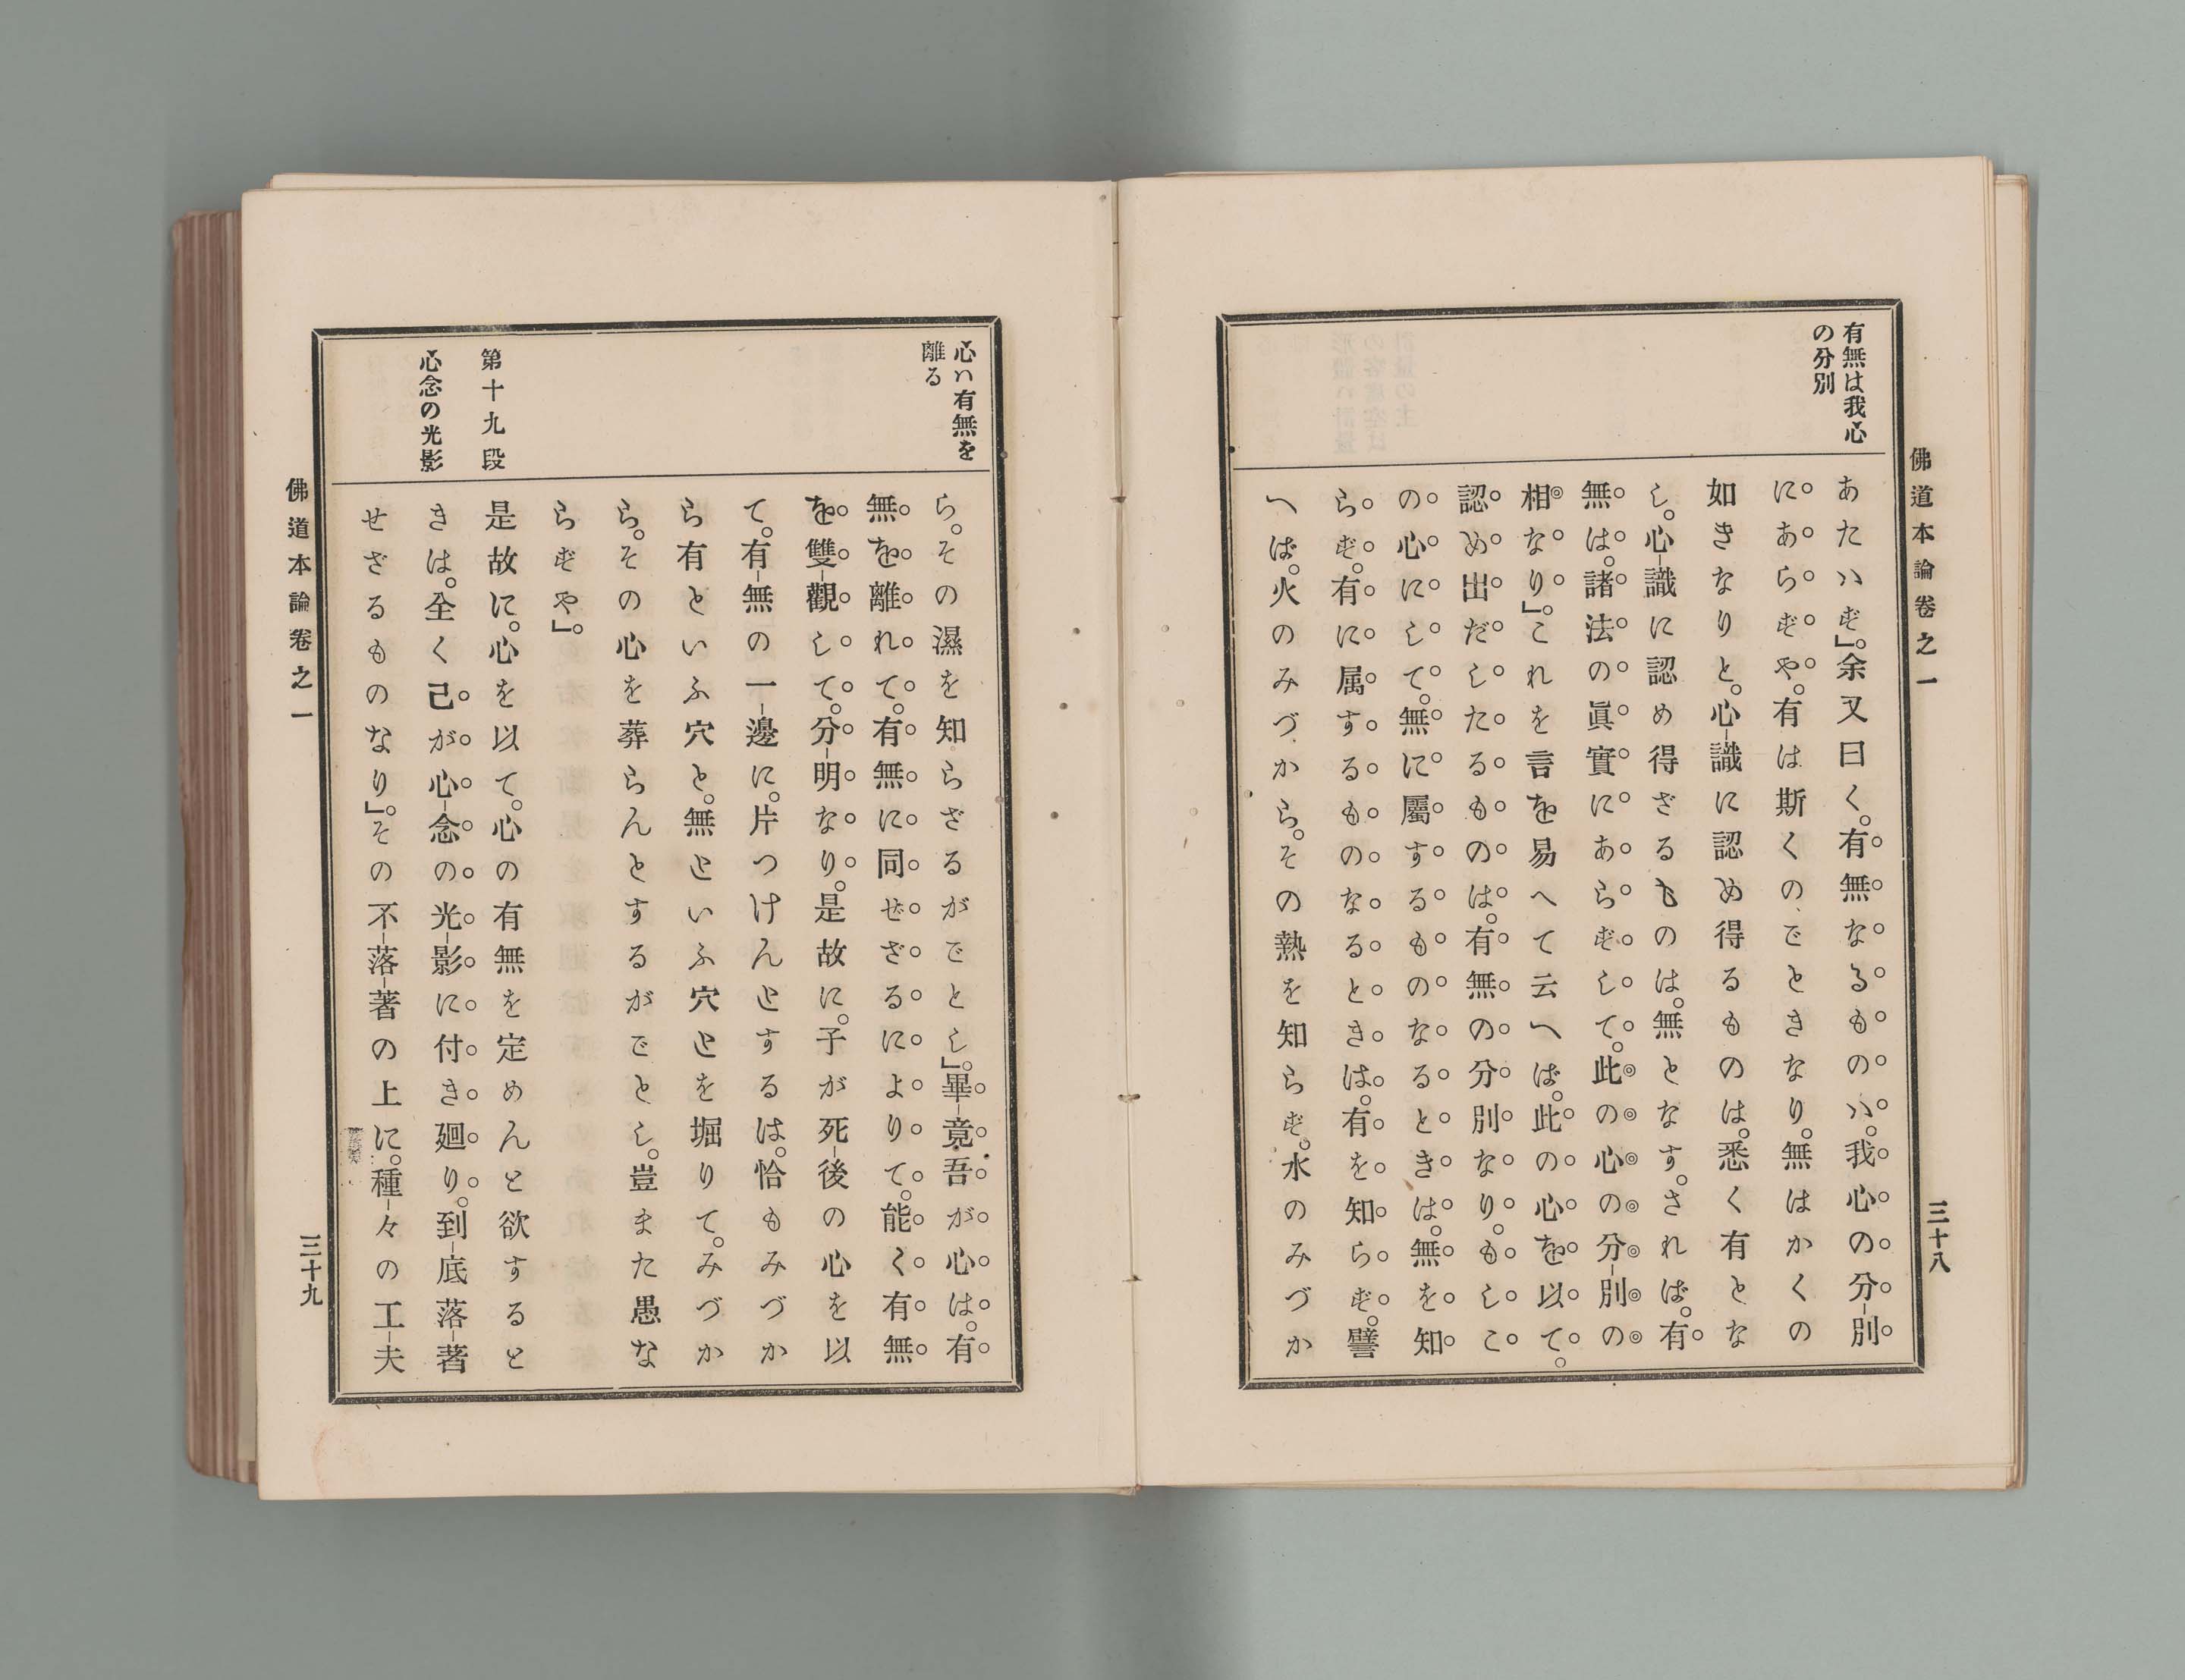 佛道本論卷之一
三十八
有無は我心
の分別
あたハず」。余又曰く。有無なるものハ。我心の分別
にあらずや。有は斯くのごときなり。無はかくの
如きなりと。心識に認め得るものは。悉く有とな
し。心識に認め得ざるものは。無となす。されば。有
無は。諸法の眞實にあらずして。此の心の分別の
相なり」。これを言を易へて云へば。此の心を以て。
認め出だしたるものは。有無の分別なり。もしこ
の心にして。無に屬するものなるときは。無を知
らず。有に属するものなるときは。有を知らず。譬
へば。火のみづから。その熱を知らず。水のみづか
心ハ有無を
離る
ら。その濕を知らざるがごとし」。畢竟吾が心は。有
無を離れて。有無に同ぜざるによりて。能く有無
を雙觀して。分明なり。是故に。子が死後の心を以
て。有無の一邊に。片つけんとするは。恰もみづか
ら有といふ穴と。無といふ穴とを堀りて。みづか
ら。その心を葬らんとするがごとし。豈また愚な
らずや」。
第十九段
是故に。心を以て。心の有無を定めんと欲すると
心念の光影
きは。全く己が心念の光影に付き廻り。到底落著
せざるものなり」。その不落著の上に。種々の工夫
佛道本論卷之一
三十九